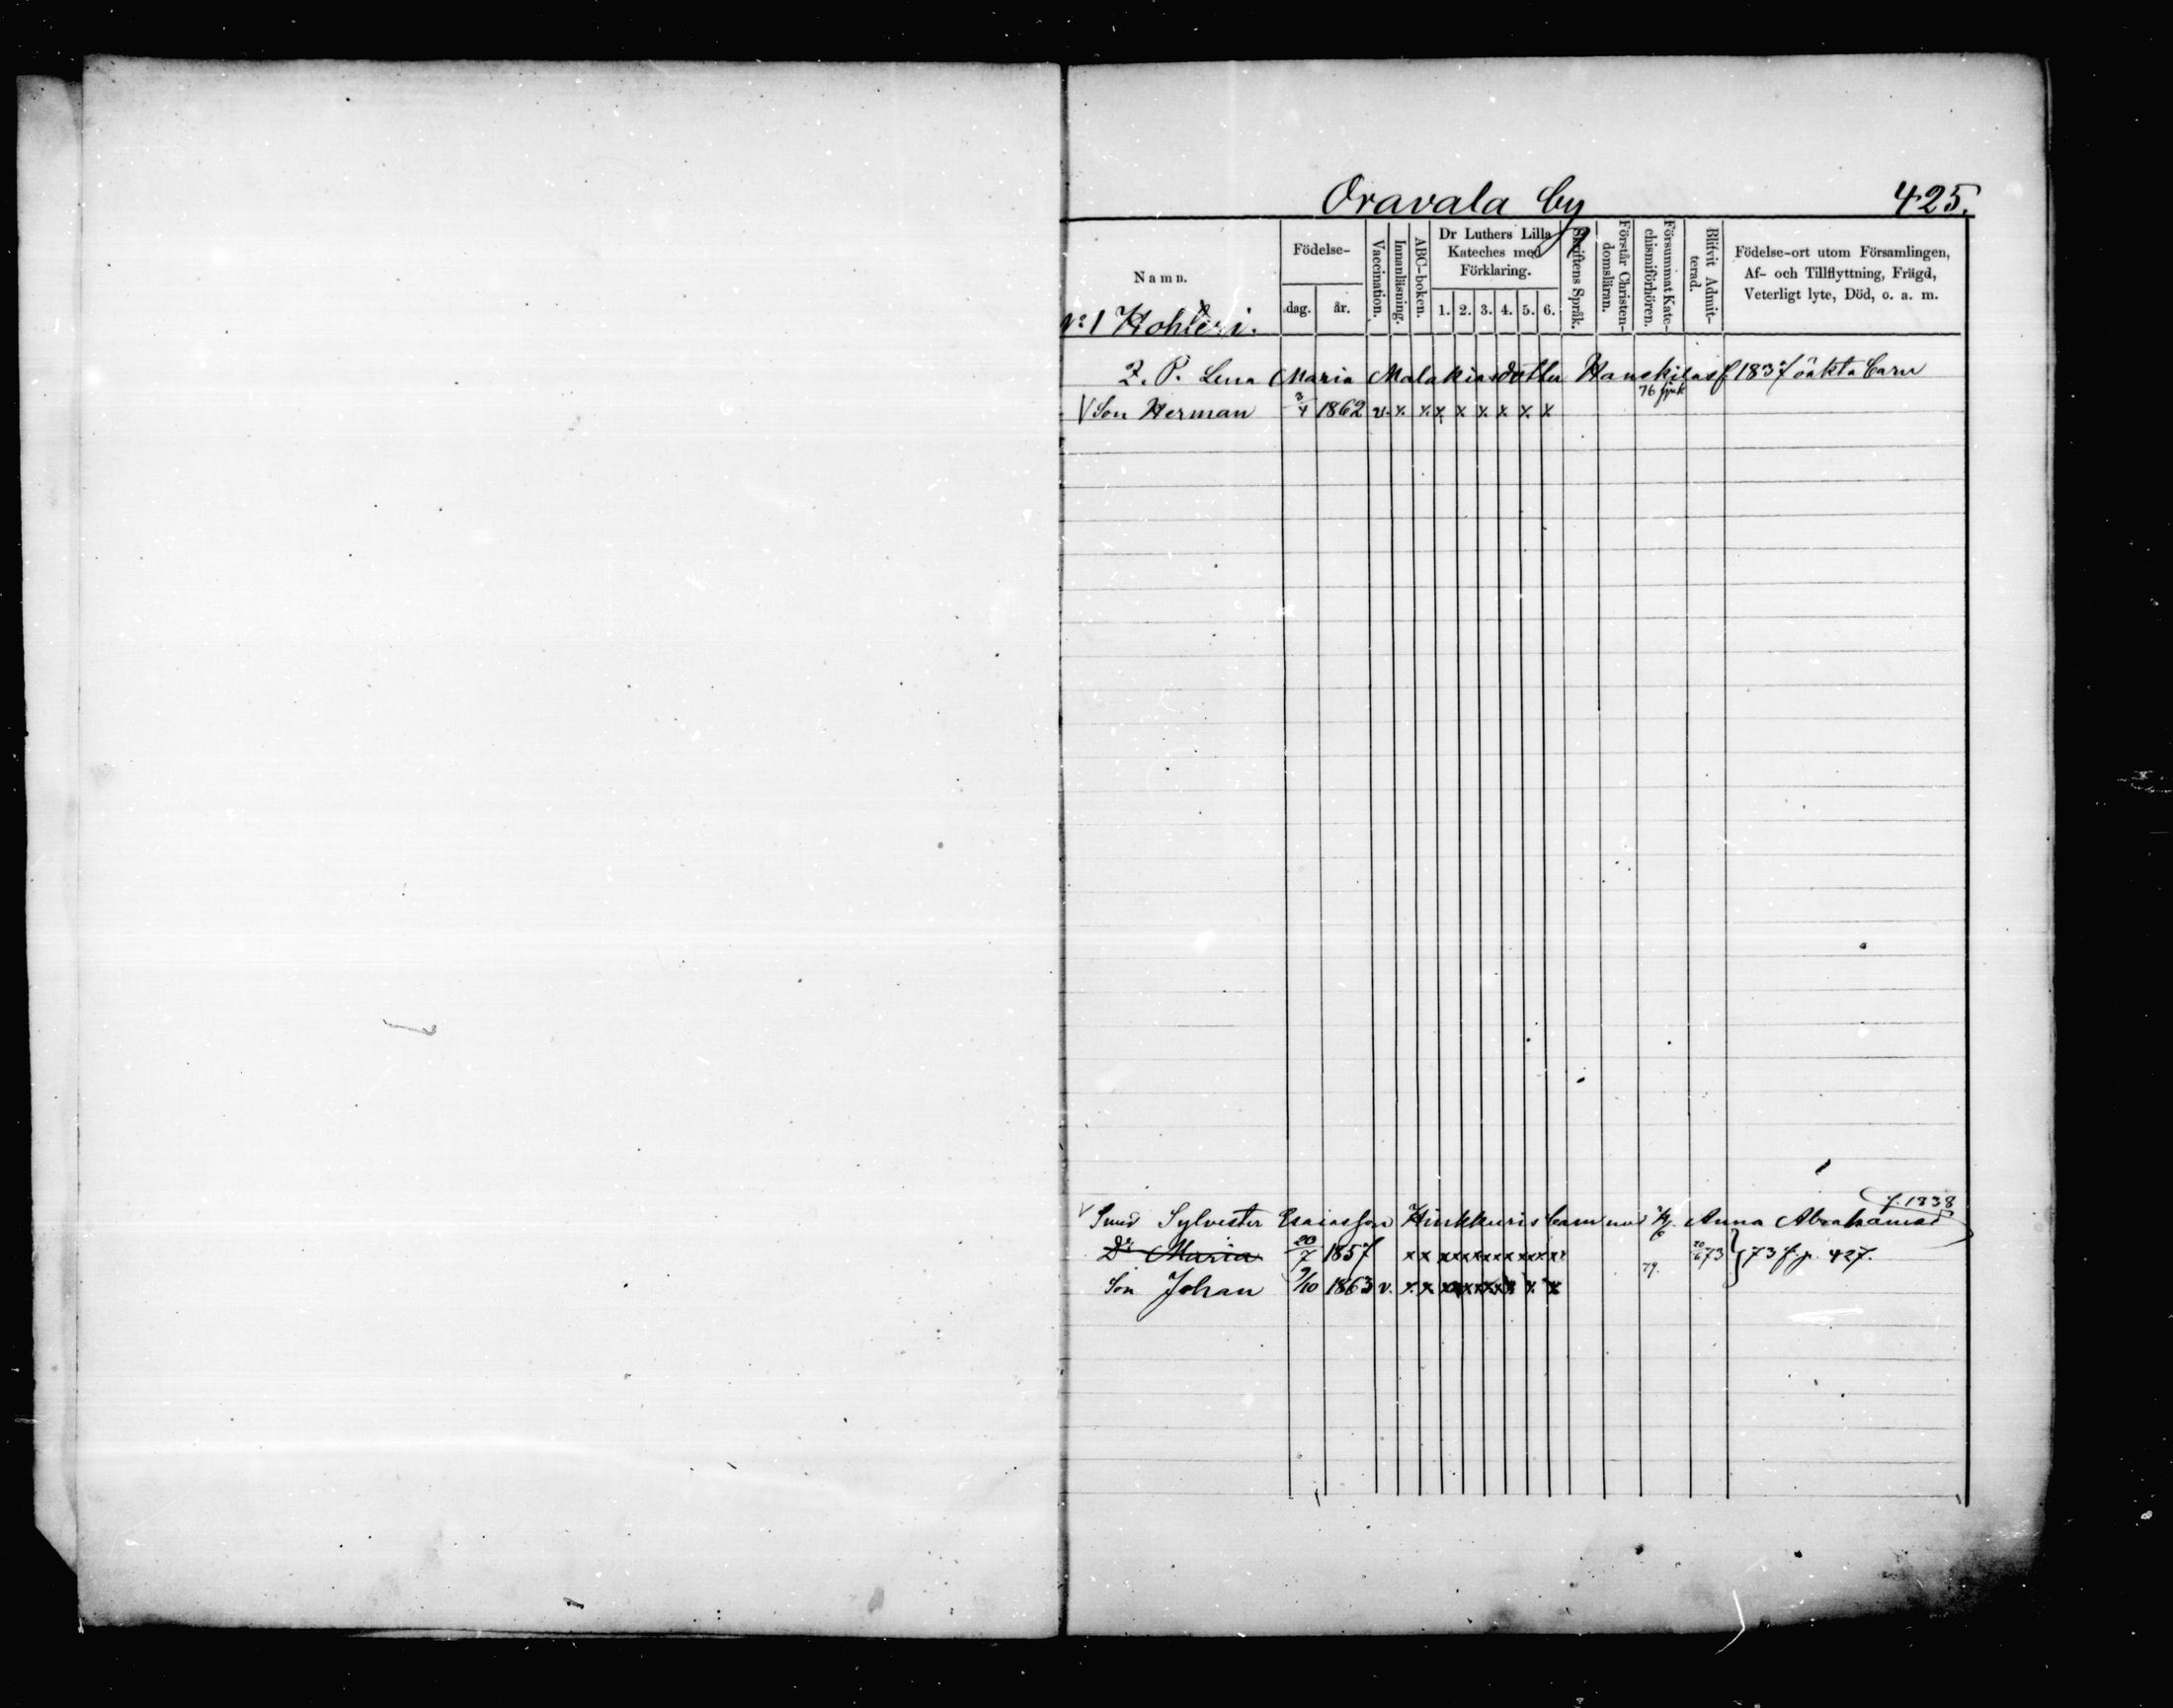 Oravala by 425.
Namn. Födelse- dag. år. Vaccination. Innanläsning. ABC-boken. Dr Luthers Lilla Kateches med Förklaring. 1. 2. 3. 4. 5. 6. Skriftens Språk. Förstår Christen-domsläran. Försummat Kate-chismiförhören. Blifvit Admit-terad. Födelse-ort utom Församlingen, Af- och Tillflyttning, Frägd, Veterligt lyte, Död, o. a. m.
№ 1 Kohteri.
Lena Maria Malakiasdotter f 1837 oäkta barn
76 sjuk
√ Son Herman 3/4 1862 v. x x x x x x x x
f. 1838
√ Smed Sylvester Esaiasson barn med Anna Abrahamsd
Dr Maria 20/7 1857 x x x x x x x x 73 } 73 f. p. 427.
Son Johan 9/10 1863 v. x x x x x x x x 79.